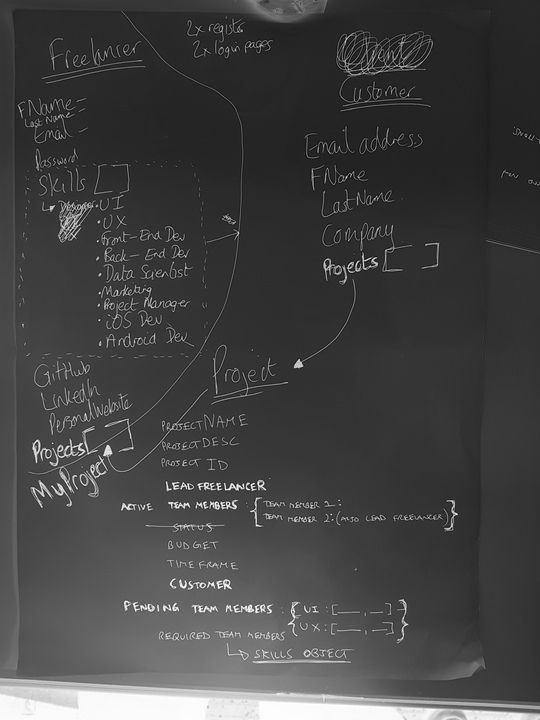 2x register
2x login pages
Freelancer
FName -
Last Name -
Email -
Password
Skills
Designer
• UI
• UX
• Front-End Dev
• Back-End Dev
• Data Scientist
• Marketing
• Project Manager
• iOS Dev
• Android Dev
GitHub
LinkedIn
Personal Website
Projects [ ]
My Project
Customer
Email address
FName
Last Name
Company
Projects [ ]
Project
PROJECT NAME
PROJECT DESC
PROJECT ID
LEAD FREELANCER
ACTIVE TEAM MEMBERS : { TEAM MEMBER 1:
TEAM MEMBER 2: (ALSO LEAD FREELANCER) }
STATUS
BUDGET
TIME FRAME
CUSTOMER
PENDING TEAM MEMBERS : { UI : [___, __]
UX : [___, __] }
REQUIRED TEAM MEMBERS
SKILLS OBJECT